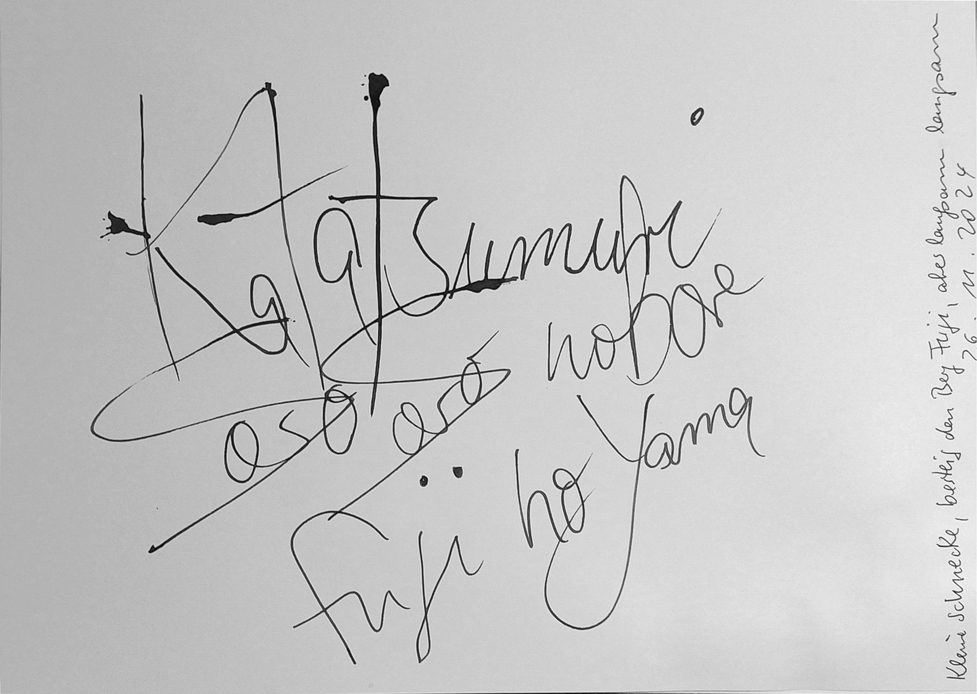 Katatsumuri
Soro Soro nobore
Fuji no Yama
Kleine Schnecke, besteig den Berg Fuji, aber langsam langsam
26. 11. 2024